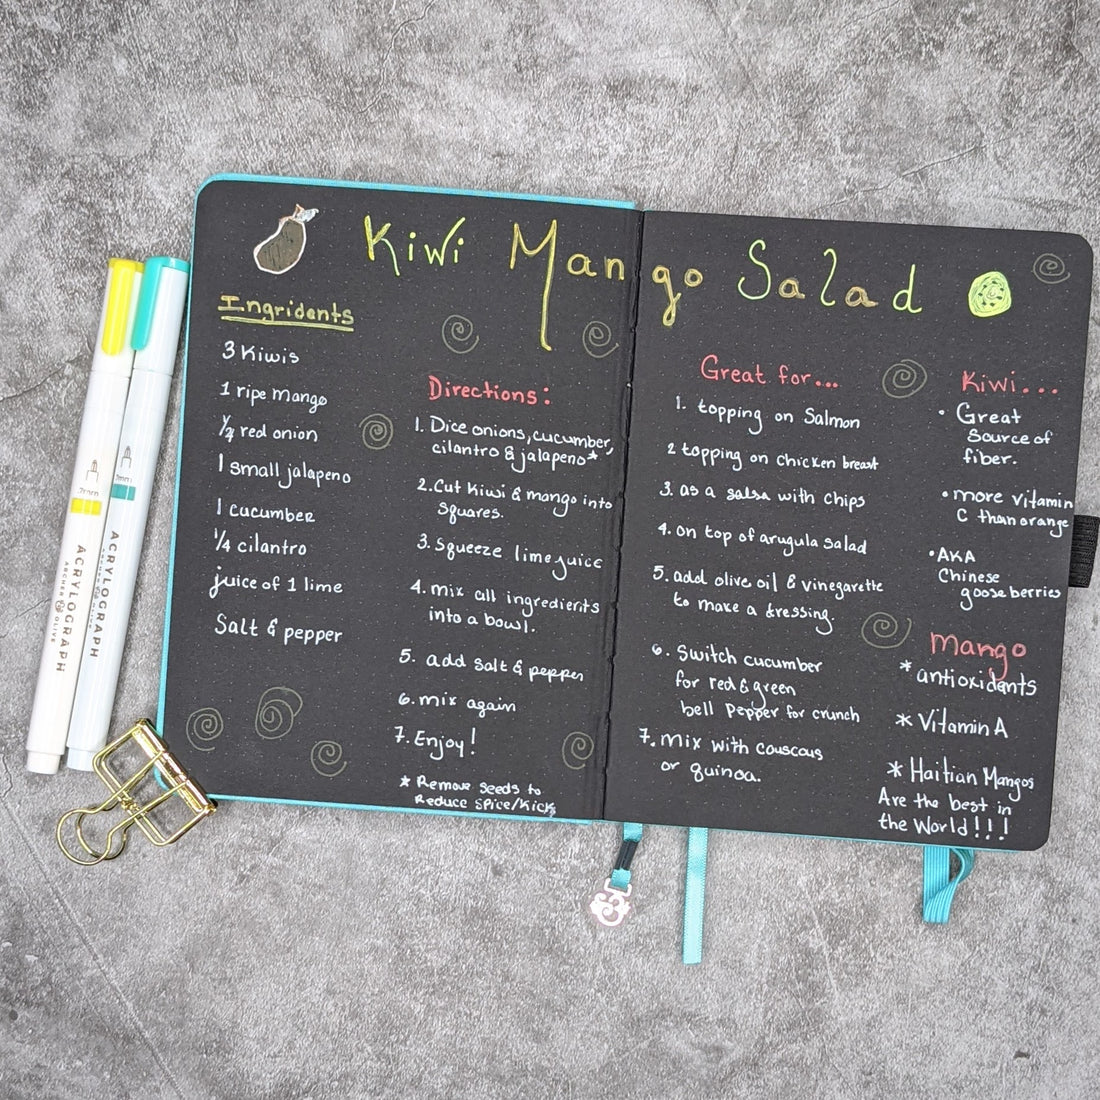 Kiwi Mango Salad
Ingridents
3 Kiwis
1 ripe mango
1/2 red onion
1 small jalapeno
1 cucumber
1/4 cilantro
juice of 1 lime
Salt & pepper
Directions:
1. Dice onions, cucumber,
cilantro & jalapeno*
2. Cut Kiwi & mango into
squares.
3. Squeeze lime juice
4. mix all ingredients
into a bowl.
5. add salt & pepper
6. mix again
7. Enjoy!
* Remove seeds to
Reduce spice/kick
Great for...
1. topping on Salmon
2 topping on chicken breast
3. as a salsa with chips
4. on top of arugula salad
5. add olive oil & vinegarette
to make a dressing.
6. Switch cucumber
for red & green
bell pepper for crunch
7. mix with couscous
or quinoa.
Kiwi...
• Great
Source of
fiber.
• more vitamin
C than orange
• AKA
Chinese
gooseberries
Mango
* antioxidents
* Vitamin A
* Haitian Mangos
Are the best in
the World!!!
.7mm
ACRYLOGRAPH
ARCHER & OLIVE
.7mm
ACRYLOGRAPH